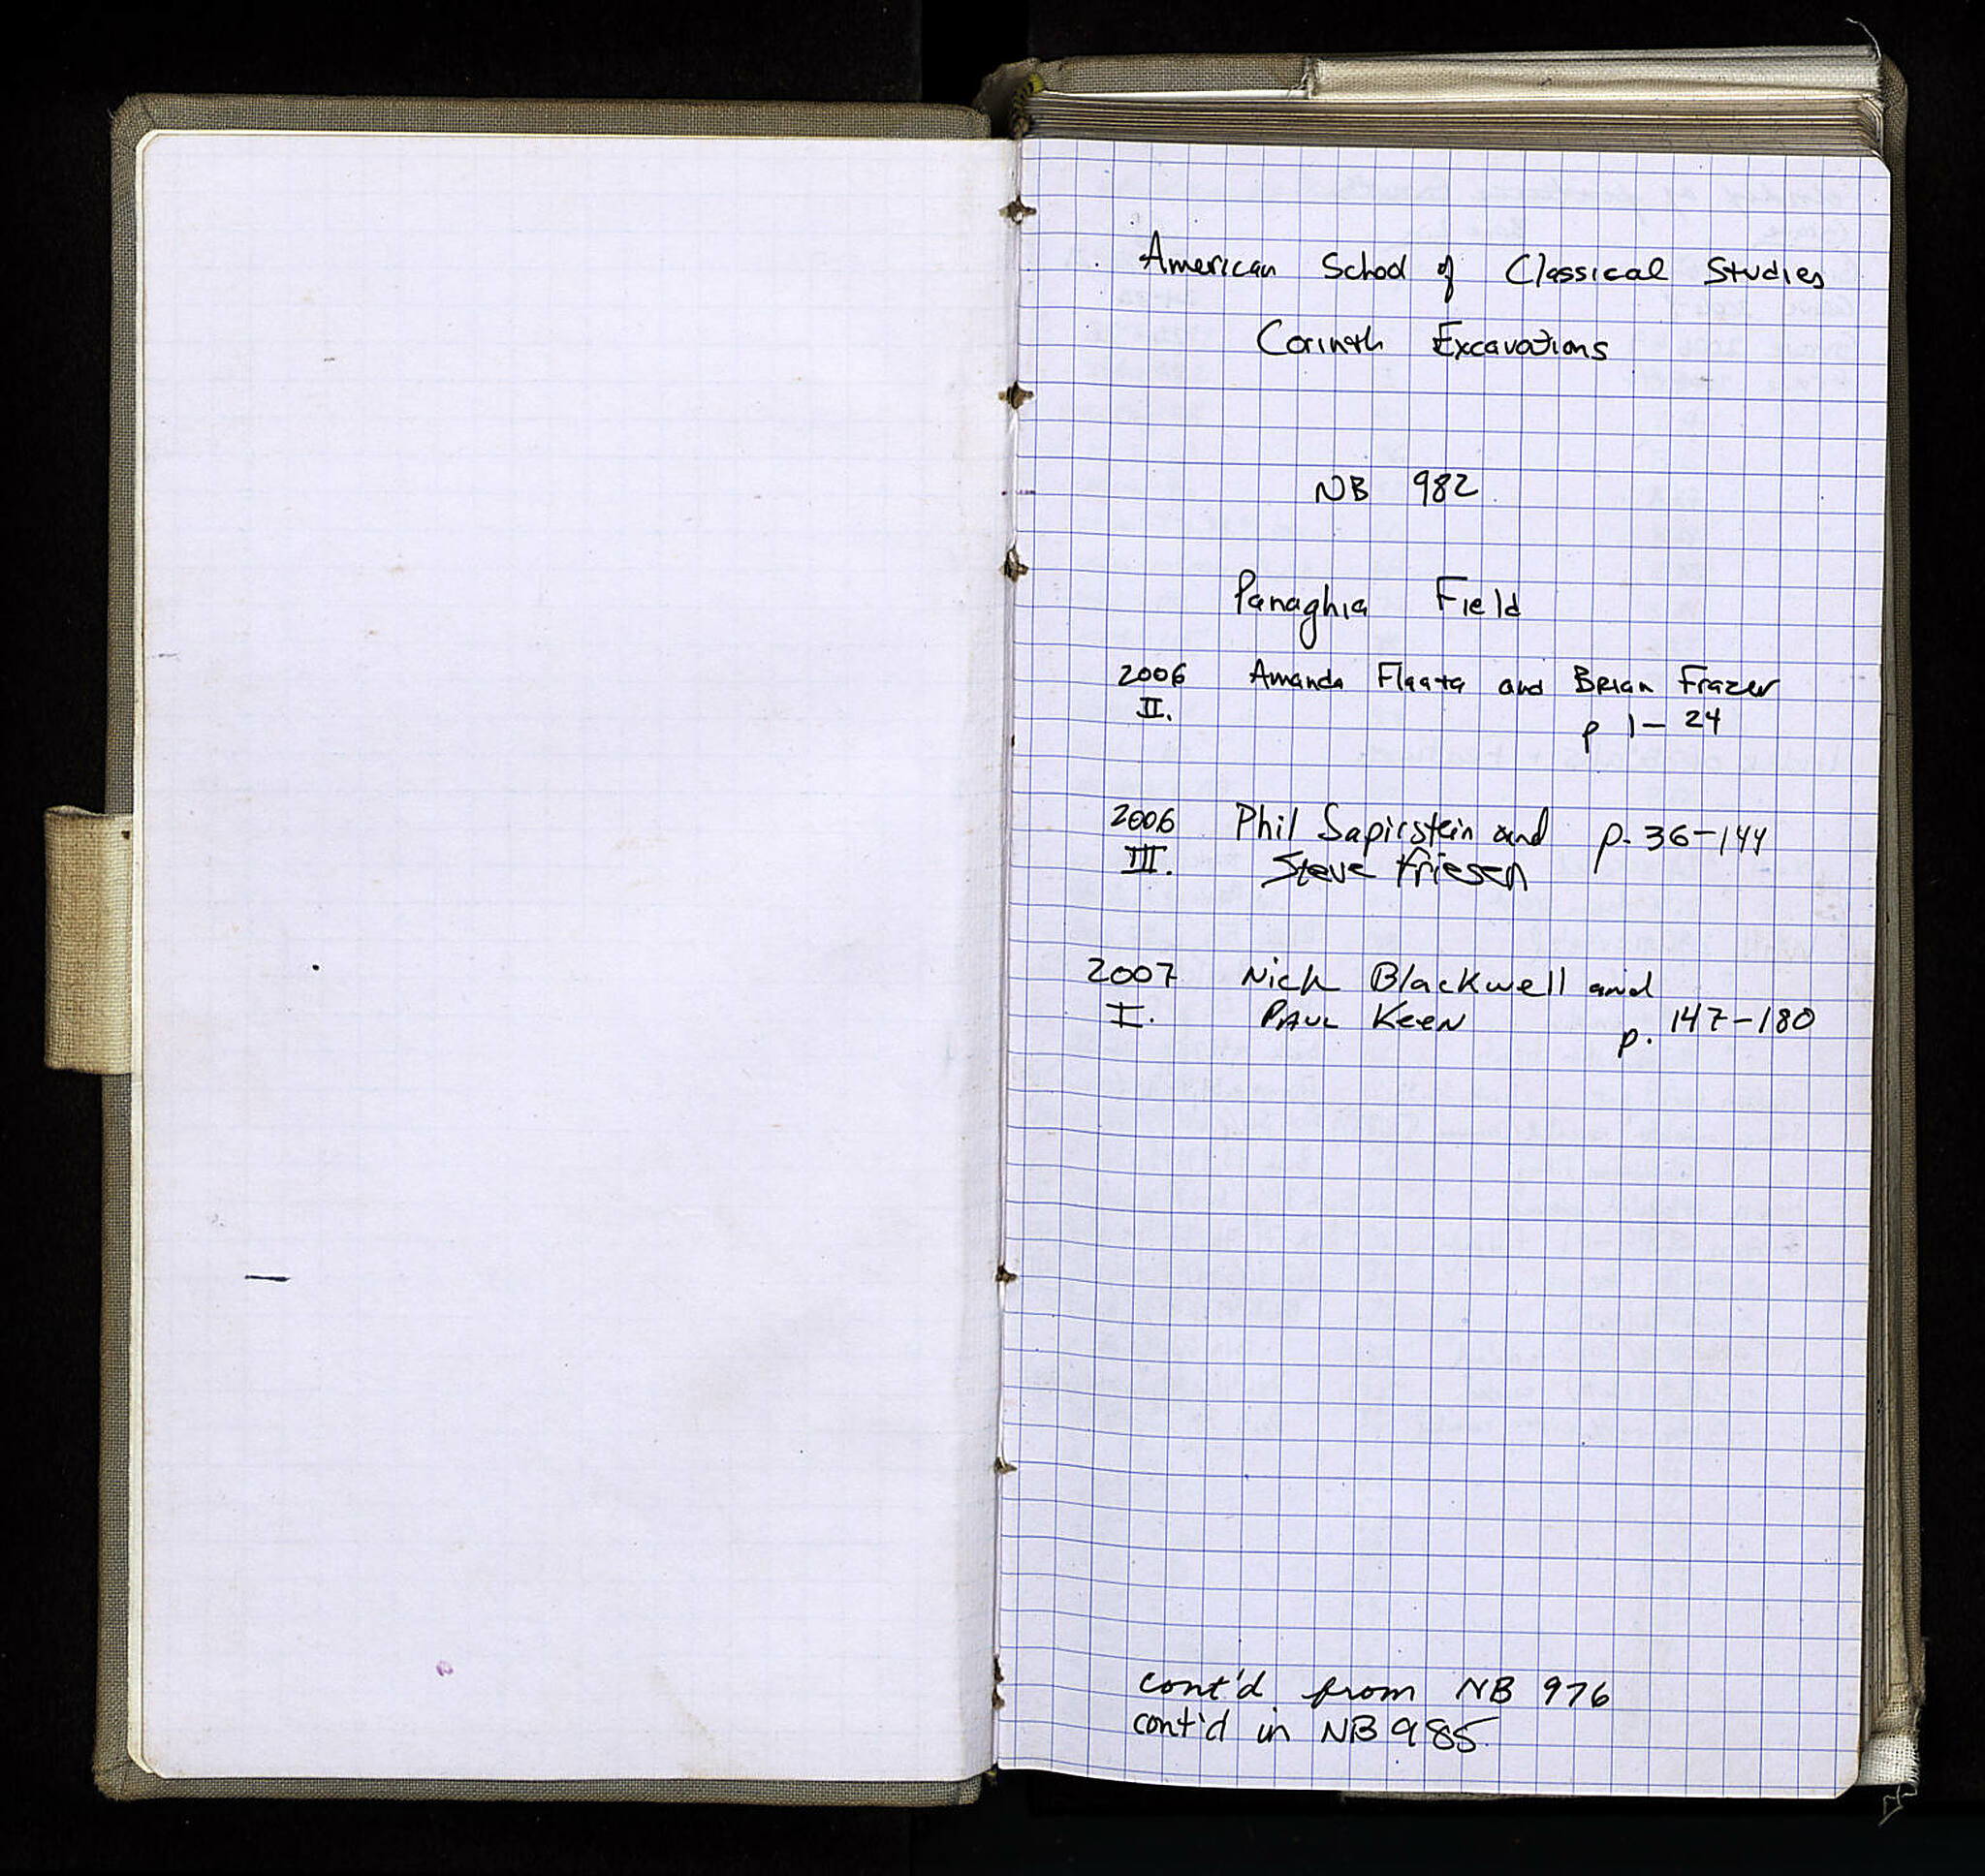 American School of Classical Studies
Corinth Excavations
NB 982
Panaghia Field
2006 Amanda Flaata and Brian Frazer
II. p 1-24
2006 Phil Sapirstein and p. 36-144
III. Steve Friesen
2007 Nick Blackwell and
I. PAUL KEEN p. 147-180
cont'd from NB 976
cont'd in NB 985